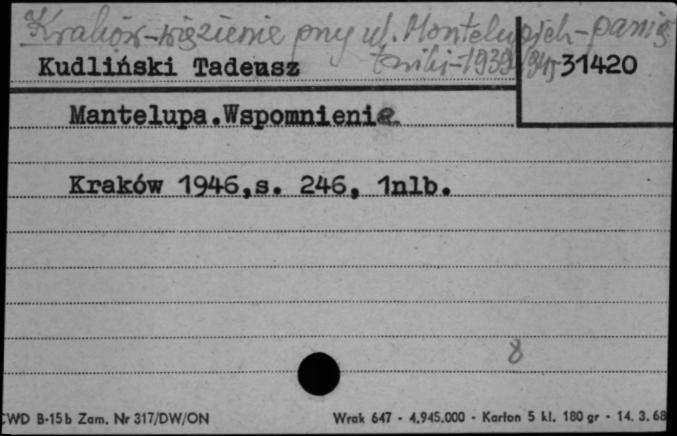 Kraków-więzienie przy ul. Montelupich-pamięt
niki-1939/945
Kudliński Tadeusz
31420
Mantelupa.Wspomnienia
Kraków 1946,s. 246, 1nlb.
8
CWD B-15b Zam. Nr 317/DW/ON
Wrak 647 - 4.945.000 - Karton 5 kl. 180 gr - 14. 3. 68